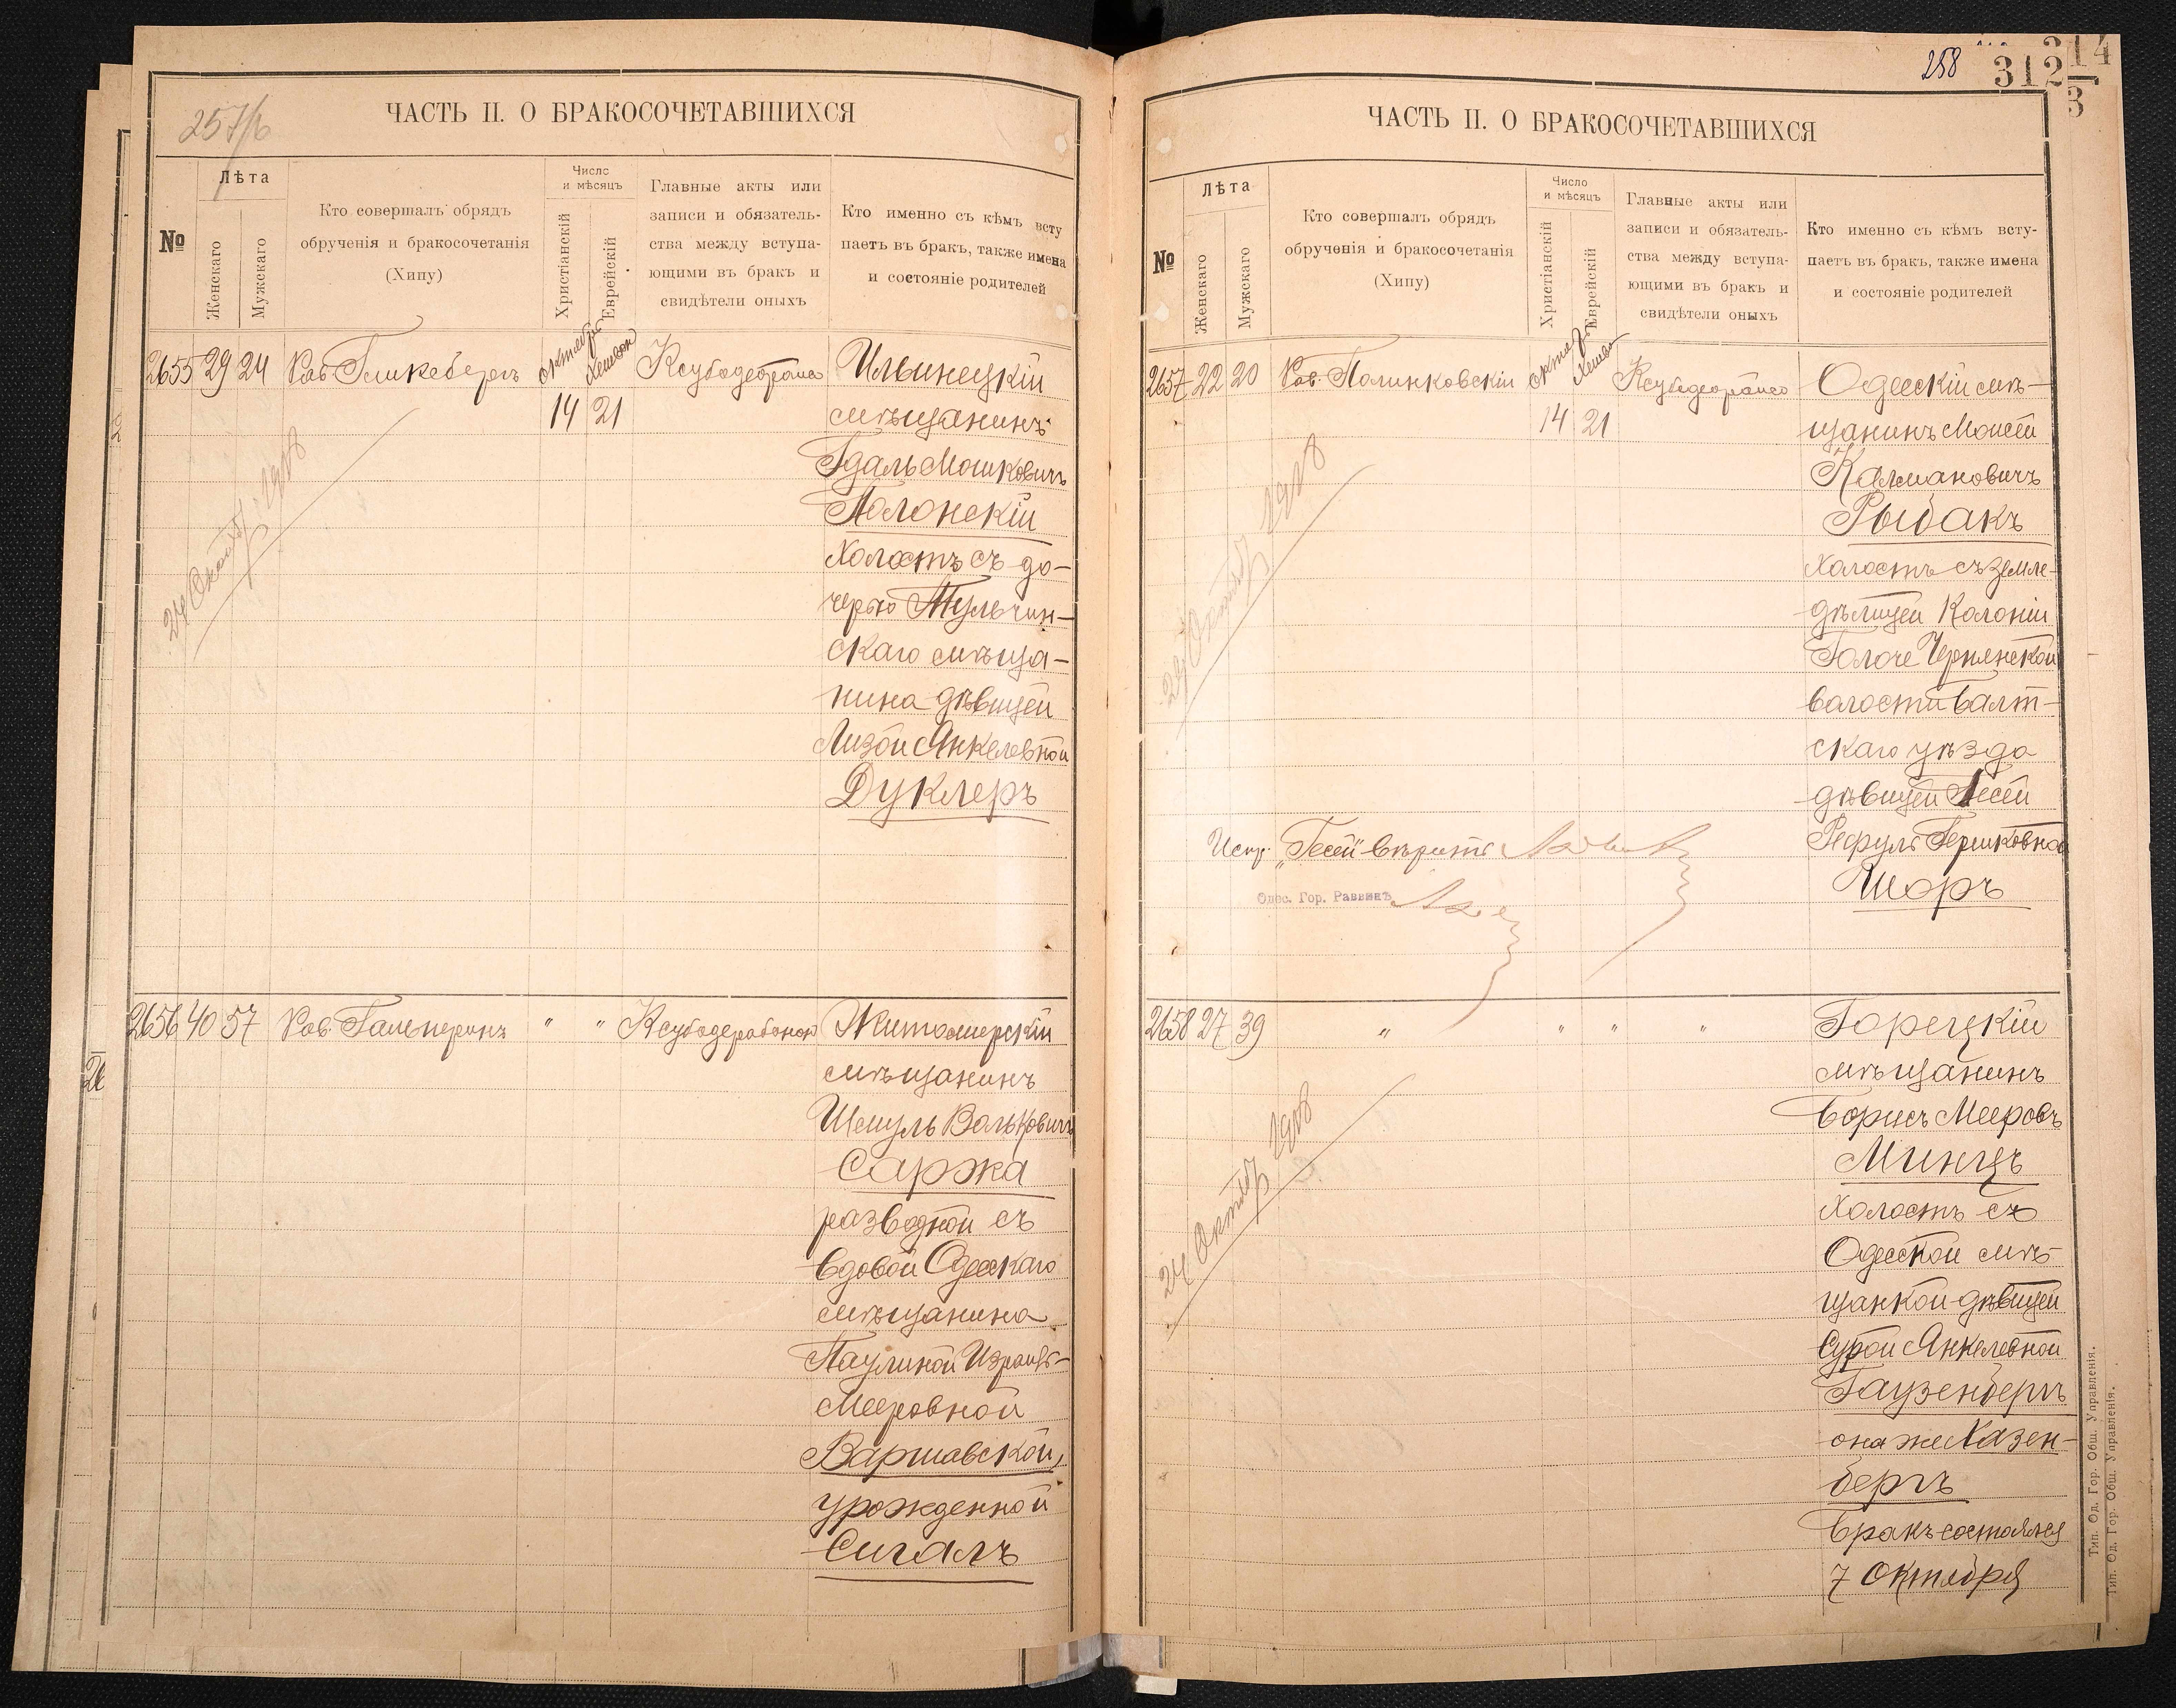 257/б
ЧАСТЬ II. О БРАКОСОЧЕТАВШИХСЯ
№
Лѣта
Женскаго
Мужскаго
Кто совершалъ обрядъ
обрученія и бракосочетанія
(Хипу)
Число
и мѣсяцъ
Христіанскій
Еврейскій
Главные акты или
записи и обязатель-
ства между вступа-
ющими въ бракъ и
свидѣтели оныхъ
Кто именно съ кѣмъ всту
паетъ въ бракъ, также имена
и состояніе родителей
2655 29 24 Рав. Гликсбергъ октября Хешвон
14 21
Ильинецкій
мѣщанинъ
Гдаль Мошковичъ
Полонскій
холостъ съ до-
черью Тульчин-
скаго мѣща-
нина дѣвицей
Лизой Янкелевной
Дуклеръ
24 Октяб. 1908
2656 40 57 Рав. Гальперинъ " "
Житомирскій
мѣщанинъ
Шмуль Вольковичъ
Саржа
разводной съ
вдовой Одесскаго
мѣщанина
Паулиной Израиль-
Мееровной
Варшавской,
урожденной
Сигалъ
258
312
314
3
ЧАСТЬ II. О БРАКОСОЧЕТАВШИХСЯ
№
Лѣта
Женскаго
Мужскаго
Кто совершалъ обрядъ
обрученія и бракосочетанія
(Хипу)
Число
и мѣсяцъ
Христіанскій
Еврейскій
Главные акты или
записи и обязатель-
ства между вступа-
ющими въ бракъ и
свидѣтели оныхъ
Кто именно съ кѣмъ всту-
паетъ въ бракъ, также имена
и состояніе родителей
2657 22 20 Рав. Полинковскій
14 21
Одесскій мѣ-
щанинъ Моисей
Калмановичъ
Рыбакъ
холостъ съ земле-
дѣлицей Колоніи
Голоче Чернянской
волости Балт-
скаго уѣзда
дѣвицей Гесей
Рефуль Гершковной
Шоръ
24 Октяб. 1908
Испр. „Гесей" вѣрить
Одес. Гор. Раввинъ
2658 27 39 " " " "
Горецкій
мѣщанинъ
Борисъ Мееровъ
Минцъ
холостъ съ
Одесской мѣ-
щанкой дѣвицей
Сурой Янкелевной
Гаузенбергъ
она же Хазен-
бергъ
бракъ состоялся
7 Октября
24 Октяб. 1908
Тип. Од. Гор. Общ. Управленія.
Тип. Од. Гор. Общ. Управленія.